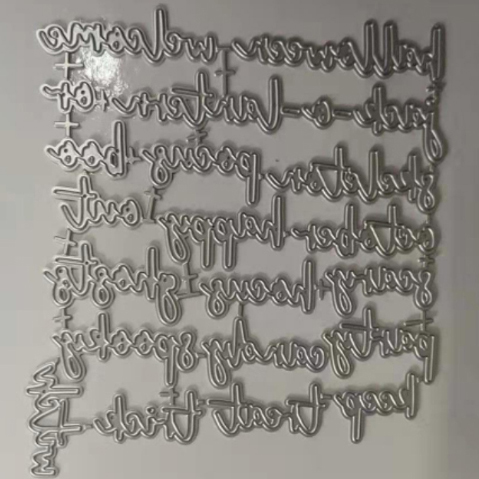 halloween welcome
jack-o-lantern or
skeleton pocus boo
october happy out
scary hocus ghosts
party candy spooky
keep treat trick
witch